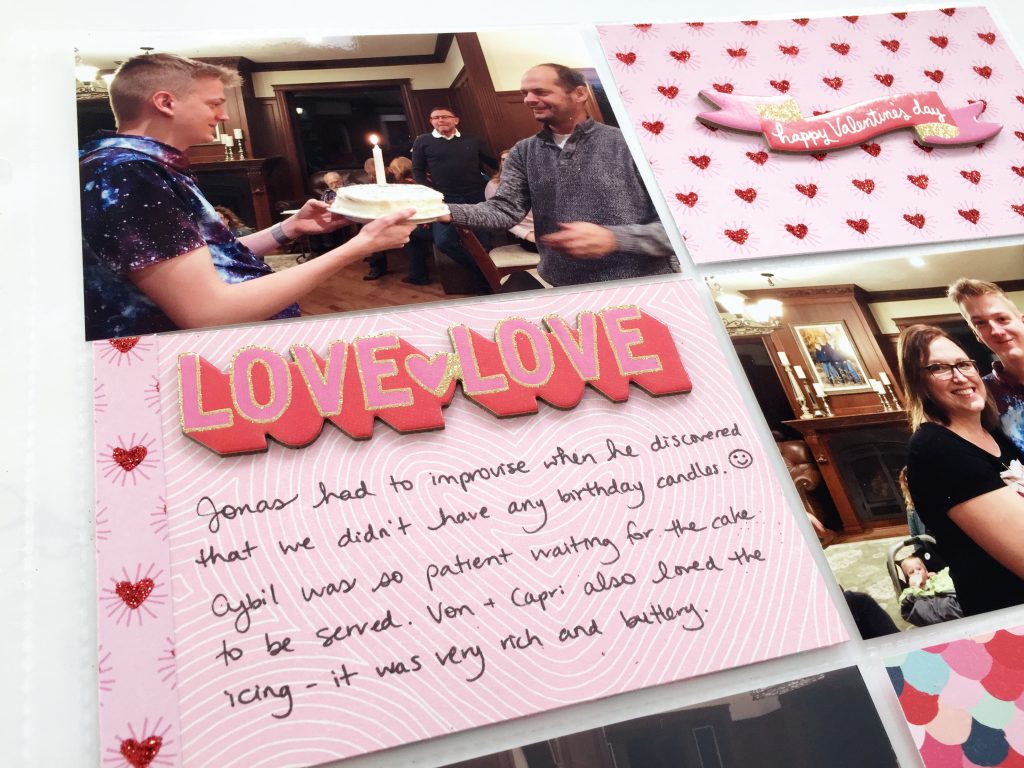 happy Valentine's day
LOVE LOVE
Jonas had to improvise when he discovered
that we didn't have any birthday candles.
Cybil was so patient waiting for the cake
to be served. Von + Capri also loved the
icing - it was very rich and buttery.